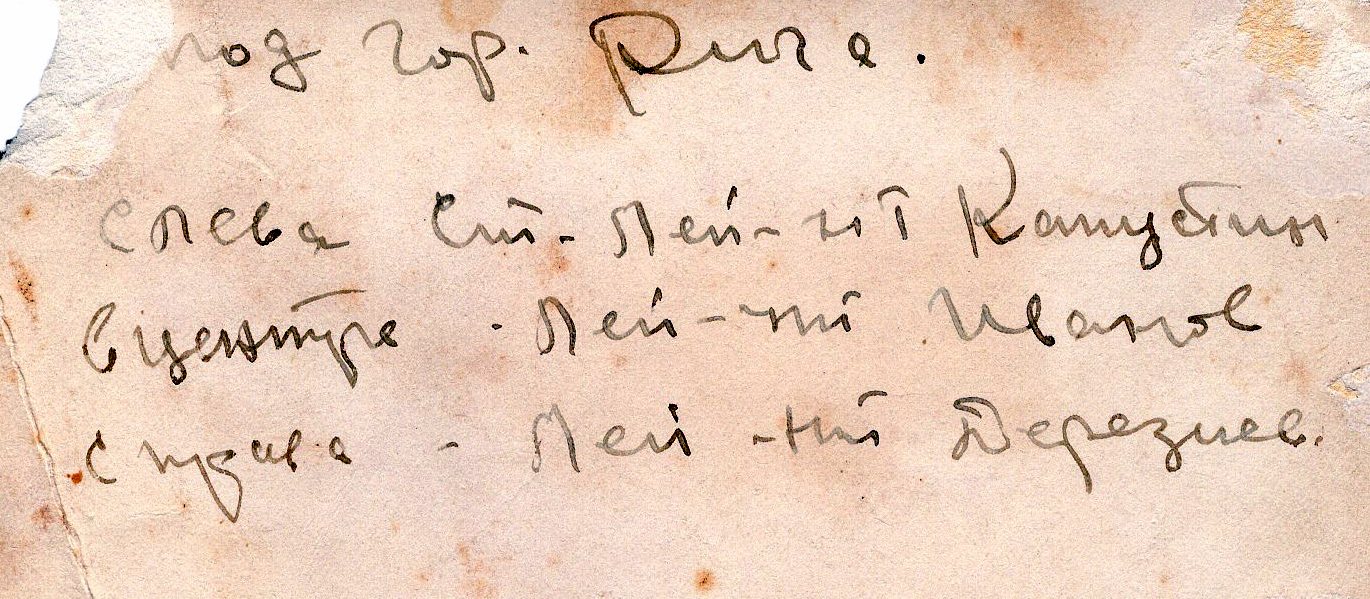 под гор. Рига.
слева Ст.-Лей-нт Капустин
В центре - Лей-нт Иванов
справа - Лей-нт